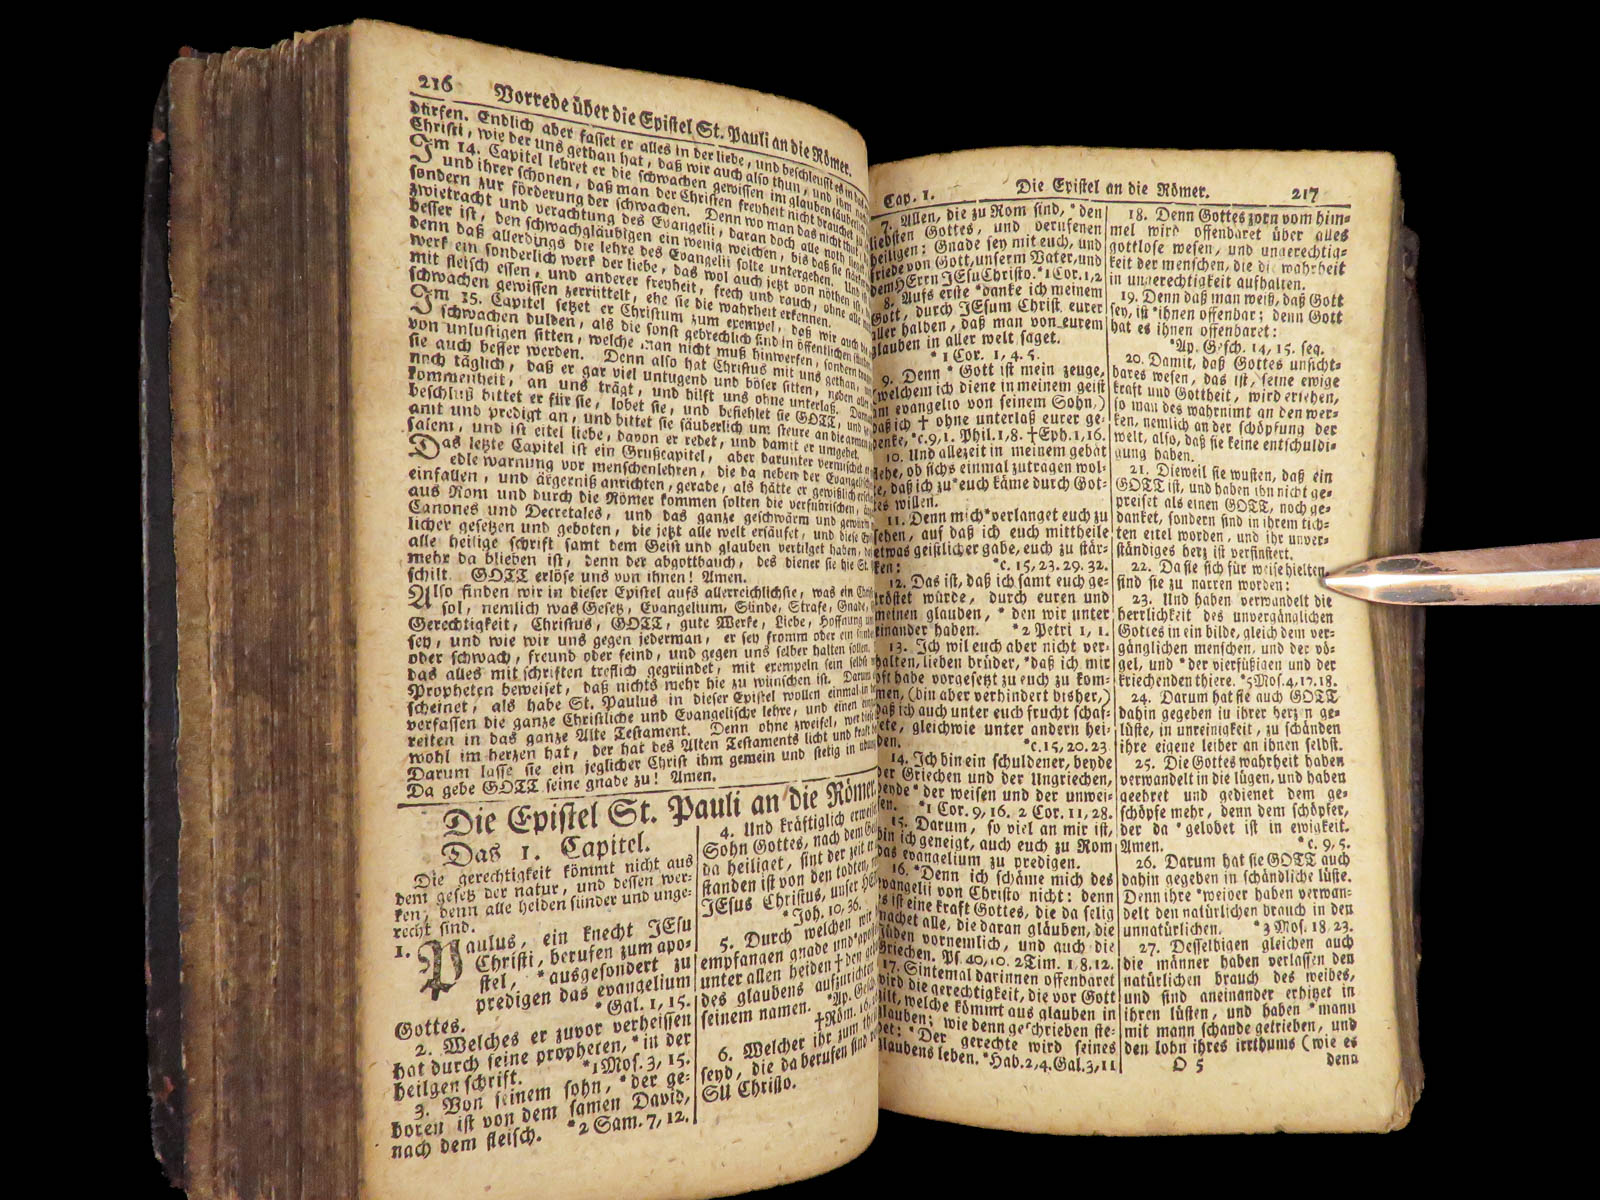 216 Vorrede über die Epistel St. Pauli an die Römer.
dürfen. Endlich aber fasset er alles in der liebe, und beschleußt es in
Christi, wie der uns gethan hat, daß wir auch also thun, und ihm
Im 14. Capitel lehret er die schwachen gewissen im glauben säuberlich
und ihrer schonen, daß man der Christen freyheit nicht brauchet zu
sondern zur förderung der schwachen. Denn wo man das nicht thut,
zwietracht und verachtung des Evangelii, daran doch alle noth lieget,
besser ist, den schwachgläubigen ein wenig weichen, bis daß sie stärker
denn daß allerdings die lehre des Evangelii solte untergehen. Und ist
werk ein sonderlich werk der liebe, das wol auch jetzt von nöthen ist,
mit fleisch essen, und anderer freyheit, frech und rauch, ohne alle
schwachen gewissen zerrüttelt, ehe sie die wahrheit erkennen.
Im 15. Capitel setzet er Christum zum exempel, daß wir auch die
schwachen dulden, als die sonst gebrechlich sind in öffentlichen
von unlustigen sitten, welche man nicht muß hinwerfen, sondern
sie auch besser werden. Denn also hat Christus mit uns gethan,
noch täglich, daß er gar viel untugend und böser sitten, neben aller
kommenheit, an uns trägt, und hilft uns ohne unterlaß.
beschluß bittet er für sie, lobet sie, und befiehlet sie GOTT, und
amt und predigt an, und bittet sie säuberlich um steure an die armen
salem, und ist eitel liebe, davon er redet, und damit er umgehet.
Das letzte Capitel ist ein Grußcapitel, aber darunter vermischet
edle warnung vor menschenlehren, die da neben der Evangelischen
einfallen, und ärgerniß anrichten, gerade, als hätte er gewißlich
aus Rom und durch die Römer kommen solten die verführischen,
Canones und Decretales, und das ganze geschwürm und gewürm
licher gesetzen und geboten, die jetzt alle welt ersäuft, und diese
alle heilige schrift samt dem Geist und glauben vertilget haben,
mehr da blieben ist, denn der abgottbauch, des diener sie hie St.
schilt. GOTT erlöse uns von ihnen! Amen.
Also finden wir in dieser Epistel aufs allerreichlichste, was ein
sol, nemlich was Gesetz, Evangelium, Sünde, Strafe, Gnade,
Gerechtigkeit, Christus, GOTT, gute Werke, Liebe, Hoffnung
sey, und wie wir uns gegen jederman, er sey fromm oder ein
oder schwach, freund oder feind, und gegen uns selber halten sollen.
das alles mit schriften treflich gegründet, mit exempeln sein selbst
Propheten beweiset, daß nichts mehr hie zu wünschen ist. Darum
scheinet, als habe St. Paulus in dieser Epistel wollen einmal in
verfassen die ganze Christliche und Evangelische lehre, und einen
reiten in das ganze Alte Testament. Denn ohne zweifel, wer diese
wohl im herzen hat, der hat des Alten Testaments licht und kraft
Darum lasse sie ein jeglicher Christ ihm gemein und stetig in
Da gebe GOTT seine gnade zu! Amen.
Die Epistel St. Pauli an die Römer.
Das 1. Capitel.
Die gerechtigkeit kömmt nicht aus
dem gesetz der natur, und dessen wer-
ken; denn alle heiden sünder und unge-
recht sind.
1. Paulus, ein knecht JEsu
Christi, berufen zum apo-
stel, *ausgesondert zu
predigen das evangelium
Gottes. *Gal. 1, 15.
2. Welches er zuvor verheissen
hat durch seine propheten, *in der
heilgen schrift. *1Mos. 3, 15.
3. Von seinem sohn, *der ge-
boren ist von dem samen David,
nach dem fleisch. *2 Sam. 7, 12.
4. Und kräftiglich
Sohn Gottes, nach dem
da heiliget, sint der zeit er
standen ist von den todten,
JEsus Christus, unser
*Joh. 10, 36.
5. Durch welchen wir
empfangen gnade und
unter allen heiden †den
des glaubens aufzurichten
seinem namen. *Ap.
†Röm. 16,
6. Welcher ihr zum
seyd, die da berufen sind
SU Christo.
Cap. 1. Die Epistel an die Römer. 217
7. Allen, die zu Rom sind, *den
liebsten Gottes, und berufenen
heiligen: Gnade sey mit euch, und
friede von Gott, unserm Vater, und
dem HErrn JEsu Christo. *1 Cor. 1, 2
8. Aufs erste *danke ich meinem
Gott, durch JEsum Christ, eurer
aller halben, daß man von eurem
glauben in aller welt saget.
*1 Cor. 1, 4. 5.
9. Denn *Gott ist mein zeuge,
(welchem ich diene in meinem geist
am evangelio von seinem Sohn,)
daß ich † ohne unterlaß eurer ge-
denke, *c. 9, 1. Phil. 1, 8. †Eph. 1, 16.
10. Und allezeit in meinem gebät
flehe, ob sichs einmal zutragen wol-
te, daß ich zu euch käme durch Got-
tes willen.
11. Denn mich *verlanget euch zu
sehen, auf daß ich euch mittheile
etwas geistlicher gabe, euch zu stär-
ken: *c. 15, 23. 29. 32.
12. Das ist, daß ich samt euch ge-
tröstet würde, durch euren und
meinen glauben, *den wir unter
einander haben. *2 Petri 1, 1.
13. Ich wil euch aber nicht ver-
halten, lieben brüder, *daß ich mir
oft habe vorgesetzt zu euch zu kom-
men, (bin aber verhindert bisher,)
daß ich auch unter euch frucht schaf-
fete, gleichwie unter andern hei-
den. *c. 15, 20. 23.
14. Ich bin ein schuldener, beyde
der Griechen und der Ungriechen,
beyde *der weisen und der unwei-
sen. *1 Cor. 9, 16. 2 Cor. 11, 28.
15. Darum, so viel an mir ist,
bin ich geneigt, auch euch zu Rom
das evangelium zu predigen.
16. *Denn ich schäme mich des
evangelii von Christo nicht: denn
es ist eine kraft Gottes, die da selig
machet alle, die daran gläuben, die
Jüden vornemlich, und auch die
Griechen. Ps. 40, 10. 2Tim. 1, 8. 12.
17. Sintemal darinnen offenbaret
wird die gerechtigkeit, die vor Gott
gilt, welche kömmt aus glauben in
glauben; wie denn geschrieben ste-
het: *Der gerechte wird seines
glaubens leben. *Hab. 2, 4. Gal. 3, 11
18. Denn Gottes zorn vom him-
mel wird offenbaret über alles
gottlose wesen, und ungerechtig-
keit der menschen, die die wahrheit
in ungerechtigkeit aufhalten.
19. Denn daß man weiß, daß Gott
sey, ist *ihnen offenbar; denn Gott
hat es ihnen offenbaret:
*Ap. Gesch. 14, 15. seq.
20. Damit, daß Gottes unsicht-
bares wesen, das ist, seine ewige
kraft und Gottheit, wird ersehen,
so man des wahrnimt an den wer-
ken, nemlich an der schöpfung der
welt, also, daß sie keine entschuldi-
gung haben.
21. Dieweil sie wusten, daß ein
GOTT ist, und haben ihn nicht ge-
preiset als einen GOTT, noch ge-
danket, sondern sind in ihrem tich-
ten eitel worden, und ihr unver-
ständiges herz ist verfinstert.
22. Da sie sich für weise hielten,
sind sie zu narren worden:
23. Und haben verwandelt die
herrlichkeit des unvergänglichen
Gottes in ein bilde, gleich dem ver-
gänglichen menschen, und der vö-
gel, und *der vierfüßigen und der
kriechenden thiere. *5Mos. 4, 17. 18.
24. Darum hat sie auch GOTT
dahin gegeben in ihrer herzen ge-
lüste, in unreinigkeit, zu schänden
ihre eigene leiber an ihnen selbst.
25. Die Gottes wahrheit haben
verwandelt in die lügen, und haben
geehret und gedienet dem ge-
schöpfe mehr, denn dem schöpfer,
der da *gelobet ist in ewigkeit.
Amen. *c. 9, 5.
26. Darum hat sie GOTT auch
dahin gegeben in schändliche lüste.
Denn ihre *weiber haben verwan-
delt den natürlichen brauch in den
unnatürlichen. *3 Mos. 18. 23.
27. Desselbigen gleichen auch
die männer haben verlassen den
natürlichen brauch des weibes,
und sind aneinander erhitzet in
ihren lüsten, und haben *mann
mit mann schande getrieben, und
den lohn ihres irrthums (wie es
O 5 denn